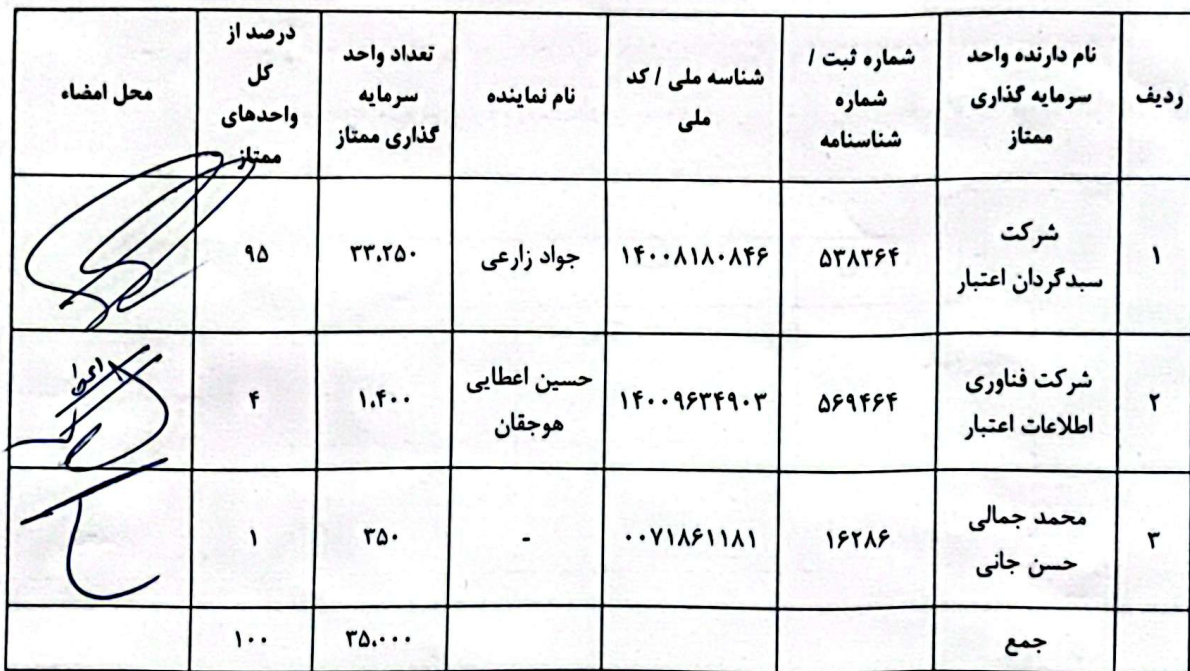 ردیف
نام دارنده واحد
سرمایه گذاری
ممتاز
شماره ثبت /
شماره
شناسنامه
شناسه ملی / کد
ملی
نام نماینده
تعداد واحد
سرمایه
گذاری ممتاز
درصد از
کل
واحدهای
ممتاز
محل امضاء
۱
شرکت
سبدگردان اعتبار
۵۳۸۳۶۴
۱۴۰۰۸۱۸۰۸۴۶
جواد زارعی
۳۳،۲۵۰
۹۵
۲
شرکت فناوری
اطلاعات اعتبار
۵۶۹۴۶۴
۱۴۰۰۹۶۳۴۹۰۳
حسین اعطایی
هوجقان
۱،۴۰۰
۴
۳
محمد جمالی
حسن جانی
۱۶۲۸۶
۰۰۷۱۸۶۱۱۸۱
-
۳۵۰
۱
جمع
۳۵،۰۰۰
۱۰۰